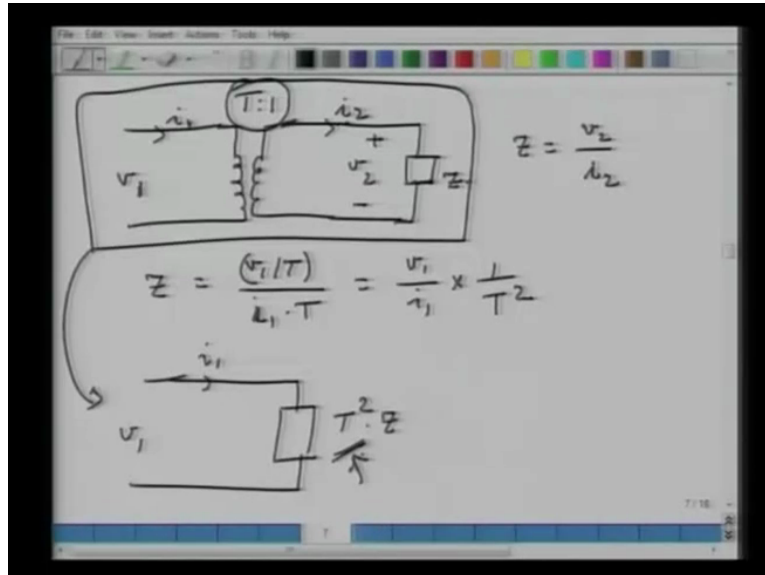 File Edit View Insert Actions Tools Help
T:1
i₁ i₂
v₁ + v₂ − Z
Z = v₂ / i₂
Z = (v₁/T) / (i₁ · T) = v₁ / i₁ × 1 / T²
i₁
v₁ T² · Z
7 / 18
7